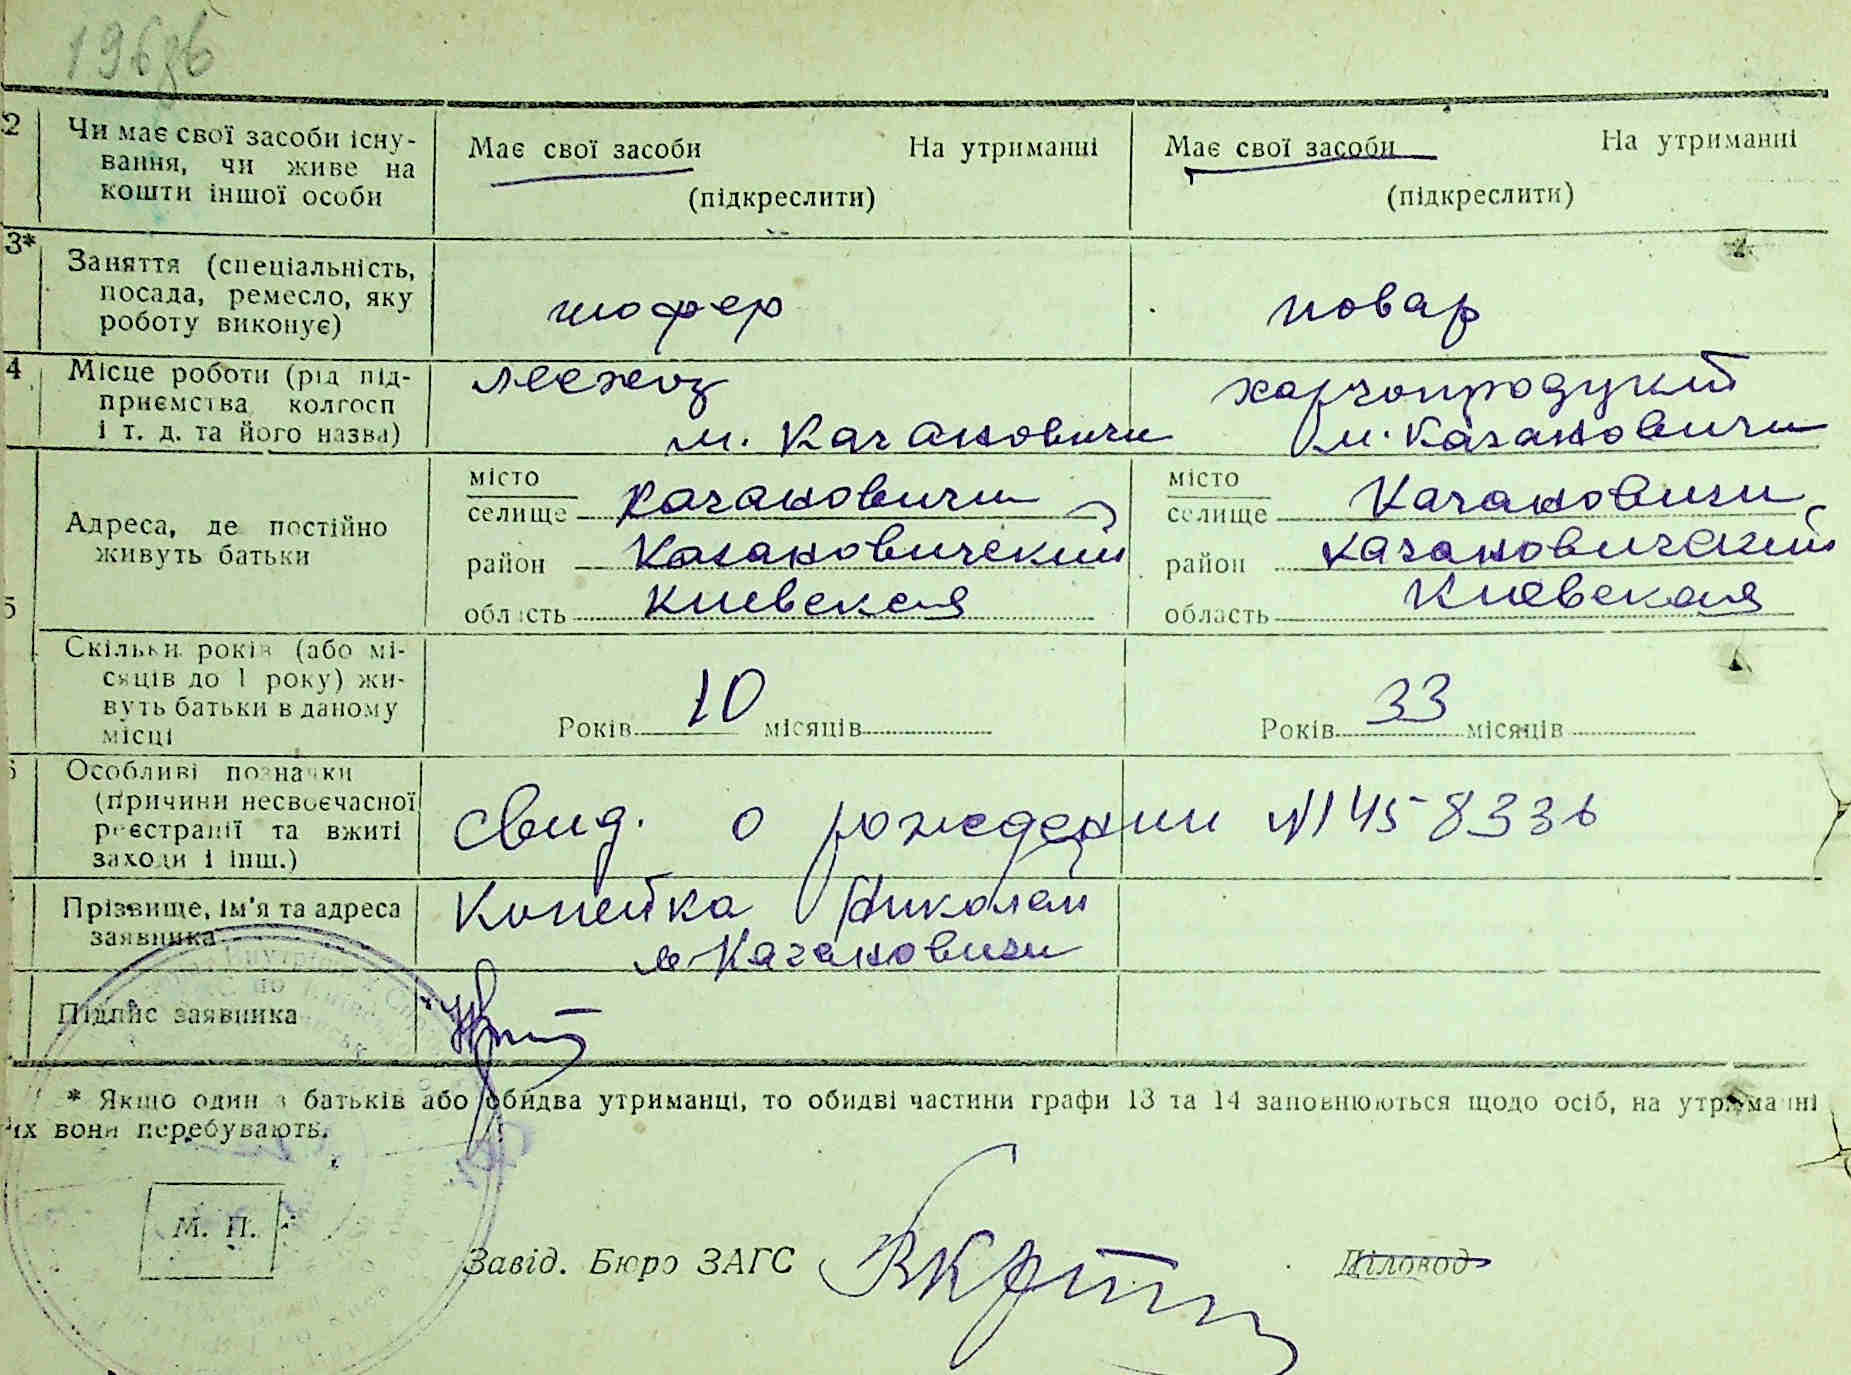 2 Чи має свої засоби існу-
вання, чи живе на
кошти іншої особи
Має свої засоби На утриманні
(підкреслити)
Має свої засоби На утриманні
(підкреслити)
3* Заняття (спеціальність,
посада, ремесло, яку
роботу виконує)
шофер
повар
4 Місце роботи (рід під-
приємства колгосп
і т. д. та його назва)
лесхоз
м. Кагановичи
харчопродукт
м. Кагановичи
5 Адреса, де постійно
живуть батьки
місто
селище Кагановичи
район Кагановический
область Киевская
місто
селище Кагановичи
район Кагановический
область Киевская
Скільки років (або мі-
сяців до 1 року) жи-
вуть батьки в даному
місці
Років 10 місяців
Років 33 місяців
Особливі позначки
(причини несвоєчасної
реєстрації та вжиті
заходи і інш.)
Свид. о рождении №1458336
Прізвище, ім'я та адреса
заявника
Копейка Николай
м. Кагановичи
Підпис заявника
* Якщо один з батьків або обидва утриманці, то обидві частини графи 13 та 14 заповнюються щодо осіб, на утриманні
их вони перебувають.
М. П.
Завід. Бюро ЗАГС
Діловод